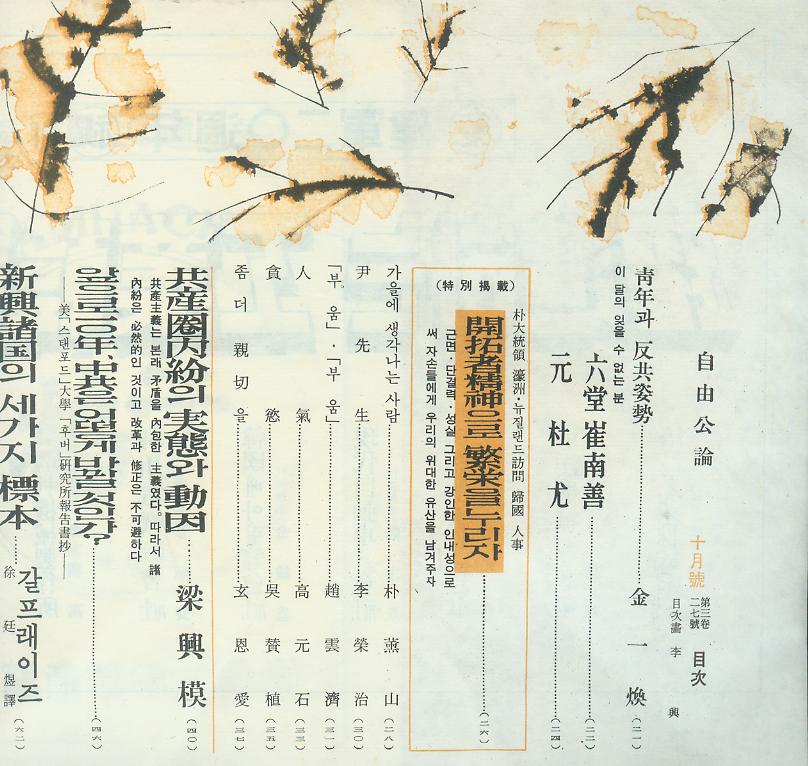 自由公論 十月號 第三卷 二七號 目次
目次畵 李 興
靑年과 反共姿勢 金一煥 (二一)
이 달의 잊을 수 없는 분
六堂 崔南善 (二二)
元杜尤 (二四)
(特別揭載)
朴大統領 濠洲·뉴질랜드 訪問 歸國 人事
開拓者精神으로 繁栄을 누리자 (二六)
근면·단결력·성실 그리고 강인한 인내성으로
써 자손들에게 우리의 위대한 유산을 남겨주자
가을에 생각나는 사람 朴薰山 (二八)
尹先生 李榮治 (三〇)
「부움」·「부움」 趙雲濟 (三一)
人氣 高元石 (三三)
貪慾 吳贊植 (三五)
좀더 親切을 玄恩愛 (三七)
共産圈內紛의 実態와 動因 梁興模 (四〇)
共產主義는 본래 矛盾을 內包한 主義였다. 따라서 諸
內紛은 必然的인 것이고 改革과 修正은 不可避하다
앞으로 一〇年, 中共은 어떻게 바뀔 것인가? (四六)
——美「스탠포드」大學「후버」硏究所報告書抄——
新興諸国의 세가지 標本 갈프래이즈 徐廷煜譯 (六二)